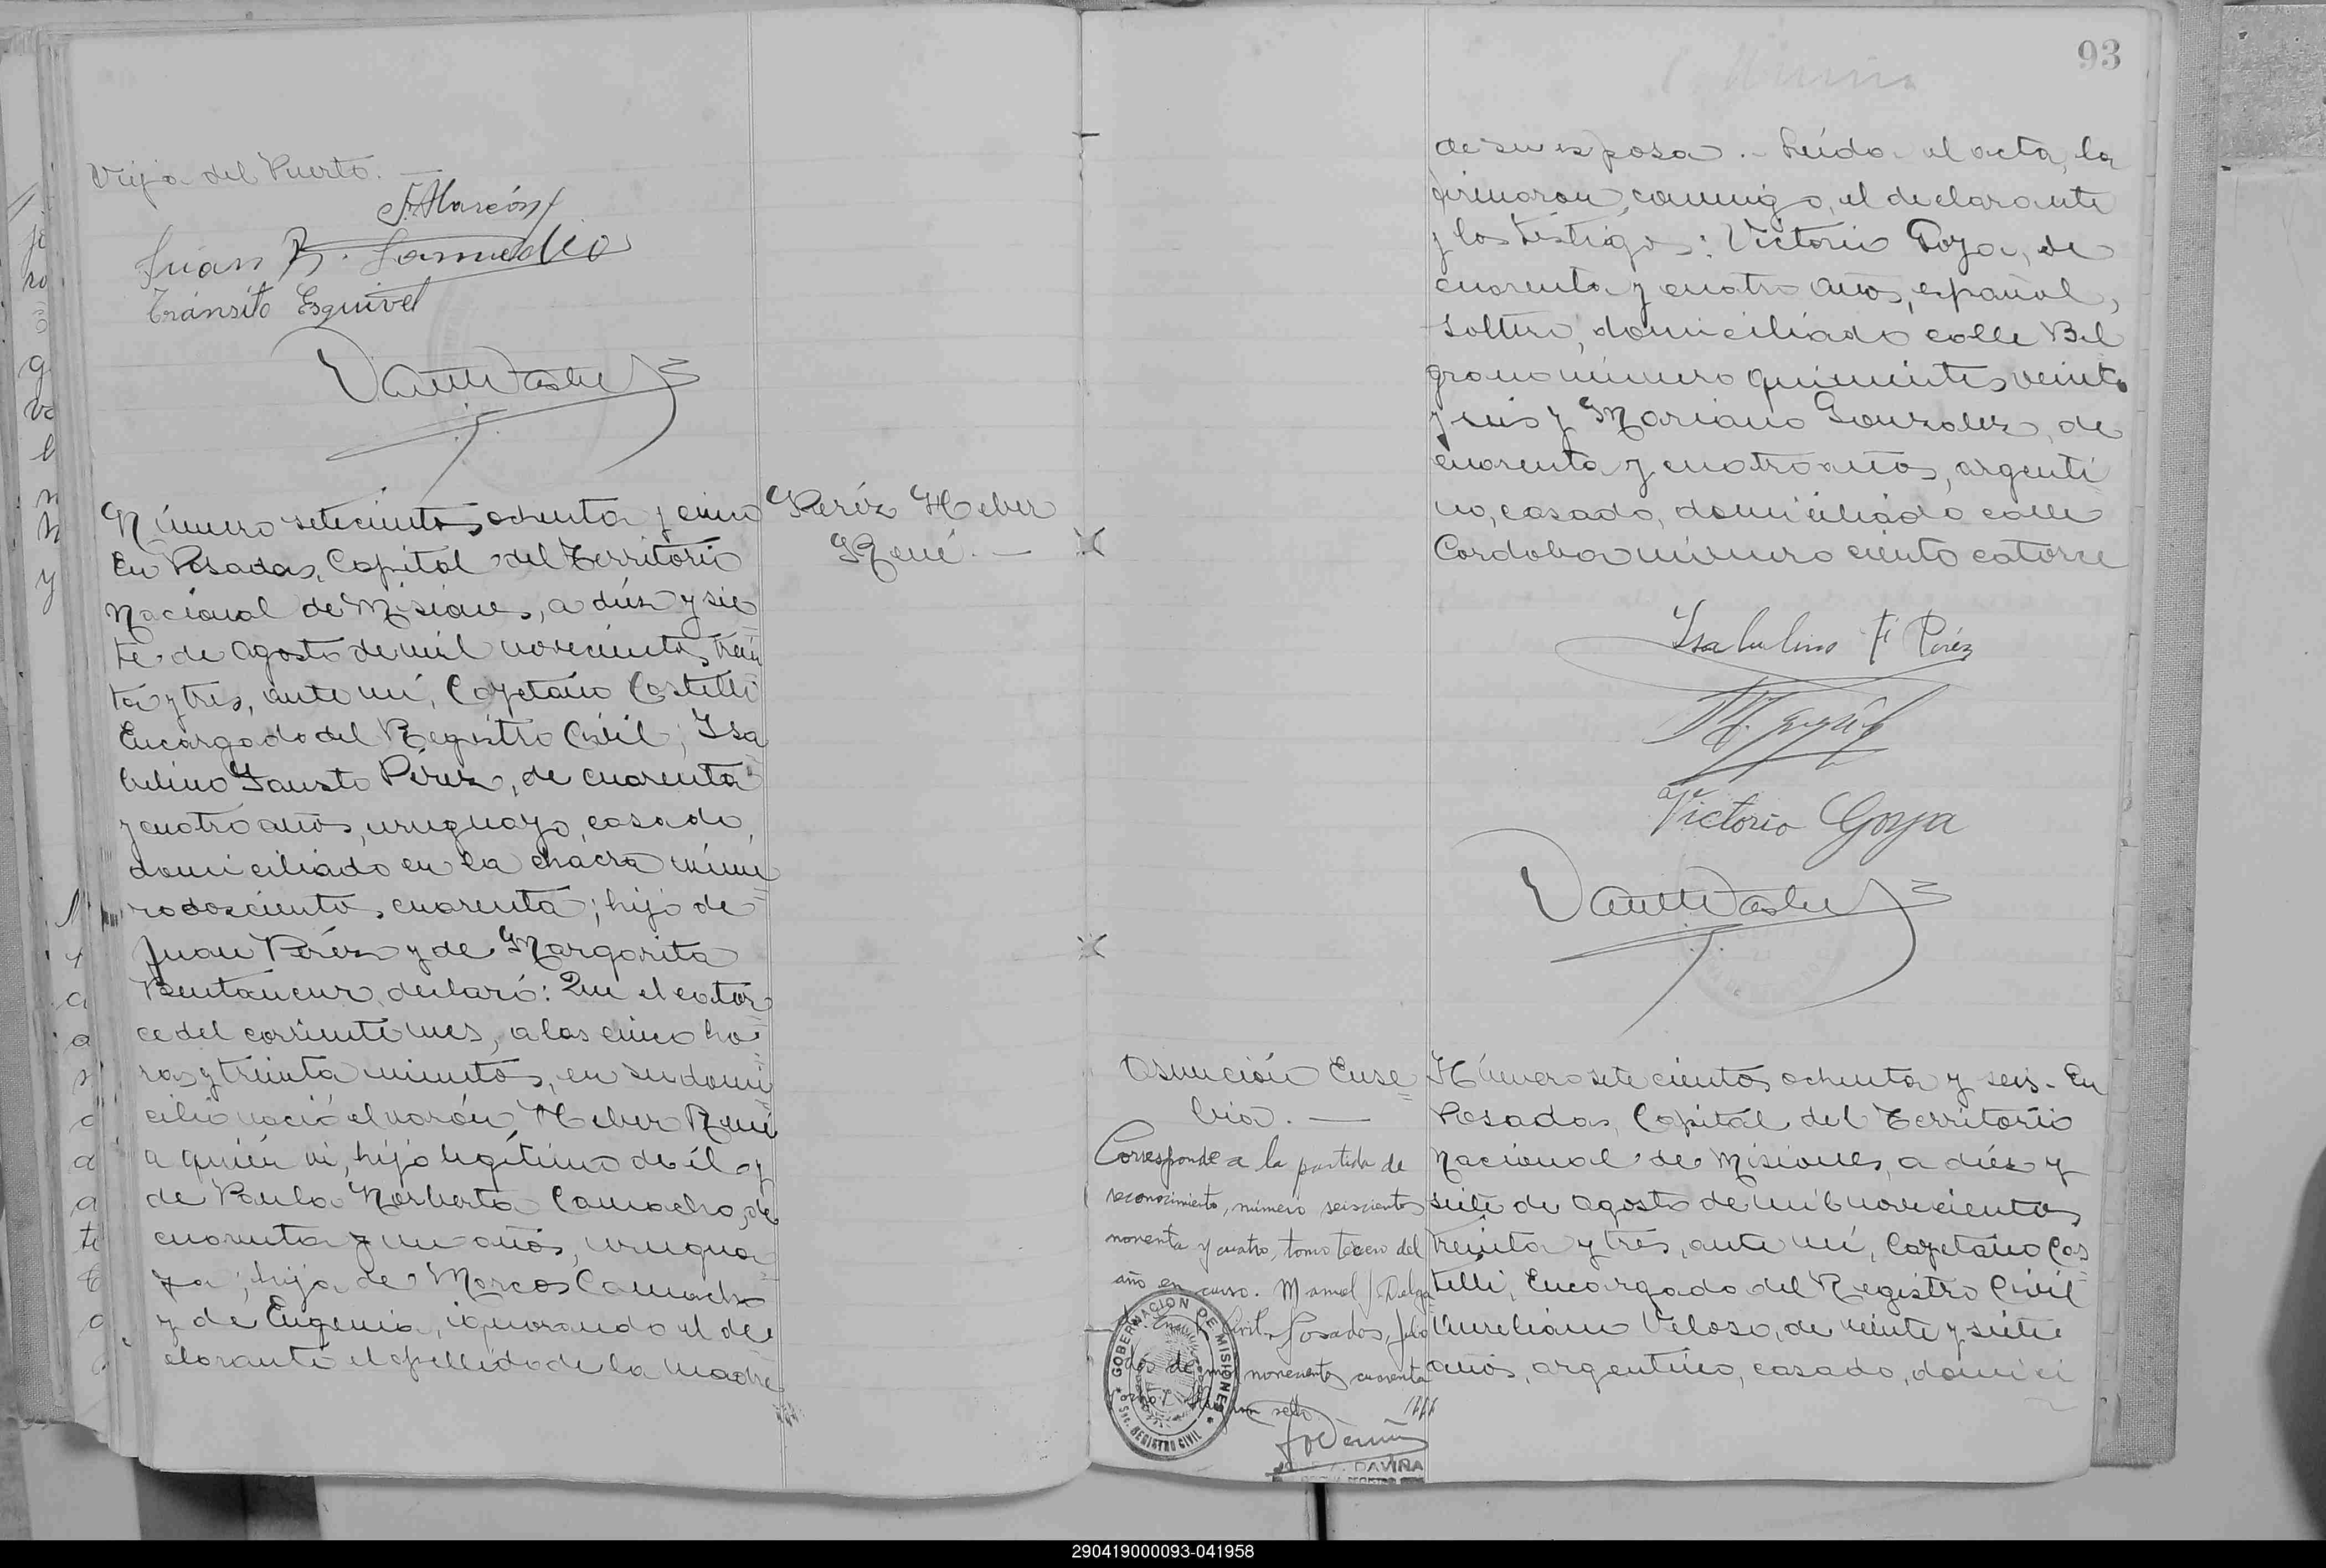 Vieja del Puerto. —
F. Alarcón
Juan B.
Tránsito Esquivel
Número setecientos ochenta y cinco
En Posadas, Capital del Territorio
Nacional de Misiones, a diéz y sie
te de Agosto de mil novecientos trein
ta y tres, ante mi, Cayetano Castelli
Encargado del Registro Civil; Isa
belino Fausto Pérez, de cuarenta
y cuatro años, uruguayo, casado,
domiciliado en la chacra núme
ro doscientos cuarenta; hijo de
Juan Peréz y de Margarita
Bentancur, declaró: Que el cator
ce del corriente mes, a las cinco ho
ras y treinta minutos, en su domi
cilio nació el varón Heber René
a quién vi, hijo legítimo de él y
de Paula Norberta Camacho, de
cuarenta y un años, urugua
ya; hija de Marcos Camacho
y de Eugenia, ignorando el de
clarante el apellido de la madre
Peréz Heber
René. —
93
de su esposa. - Leída el acta, la
firmaron, conmigo, el declarante
y los testigos: Victorio Goya, de
cuarenta y cuatro años, español,
soltero, domiciliado calle Bel
grano número quinientos veinte
y seis y Mariano Gonzalez, de
cuarenta y cuatro años, argenti
no, casado, domiciliado calle
Cordoba número ciento catorce
Isabelino F. Peréz
Victorio Goya
Asunción Euse
bia. —
Corresponde a la partida de
reconocimiento, número seiscientos
noventa y cuatro, tomo tercero del
año en curso. Manuel J. Delga
Civil. Posadas, julio
dos de mil novecientos cuarenta
GOBERNACION DE MISIONES
REGISTRO CIVIL
DAVIÑA
Número setecientos ochenta y seis - En
Posadas, Capital del Territorio
Nacional de Misiones, a diéz y
siete de Agosto de mil novecientos
treinta y tres, ante mi, Cayetano Cas
telli, Encargado del Registro Civil
Aureliano Veloso, de veinte y siete
años, argentino, casado, domici
290419000093-041958